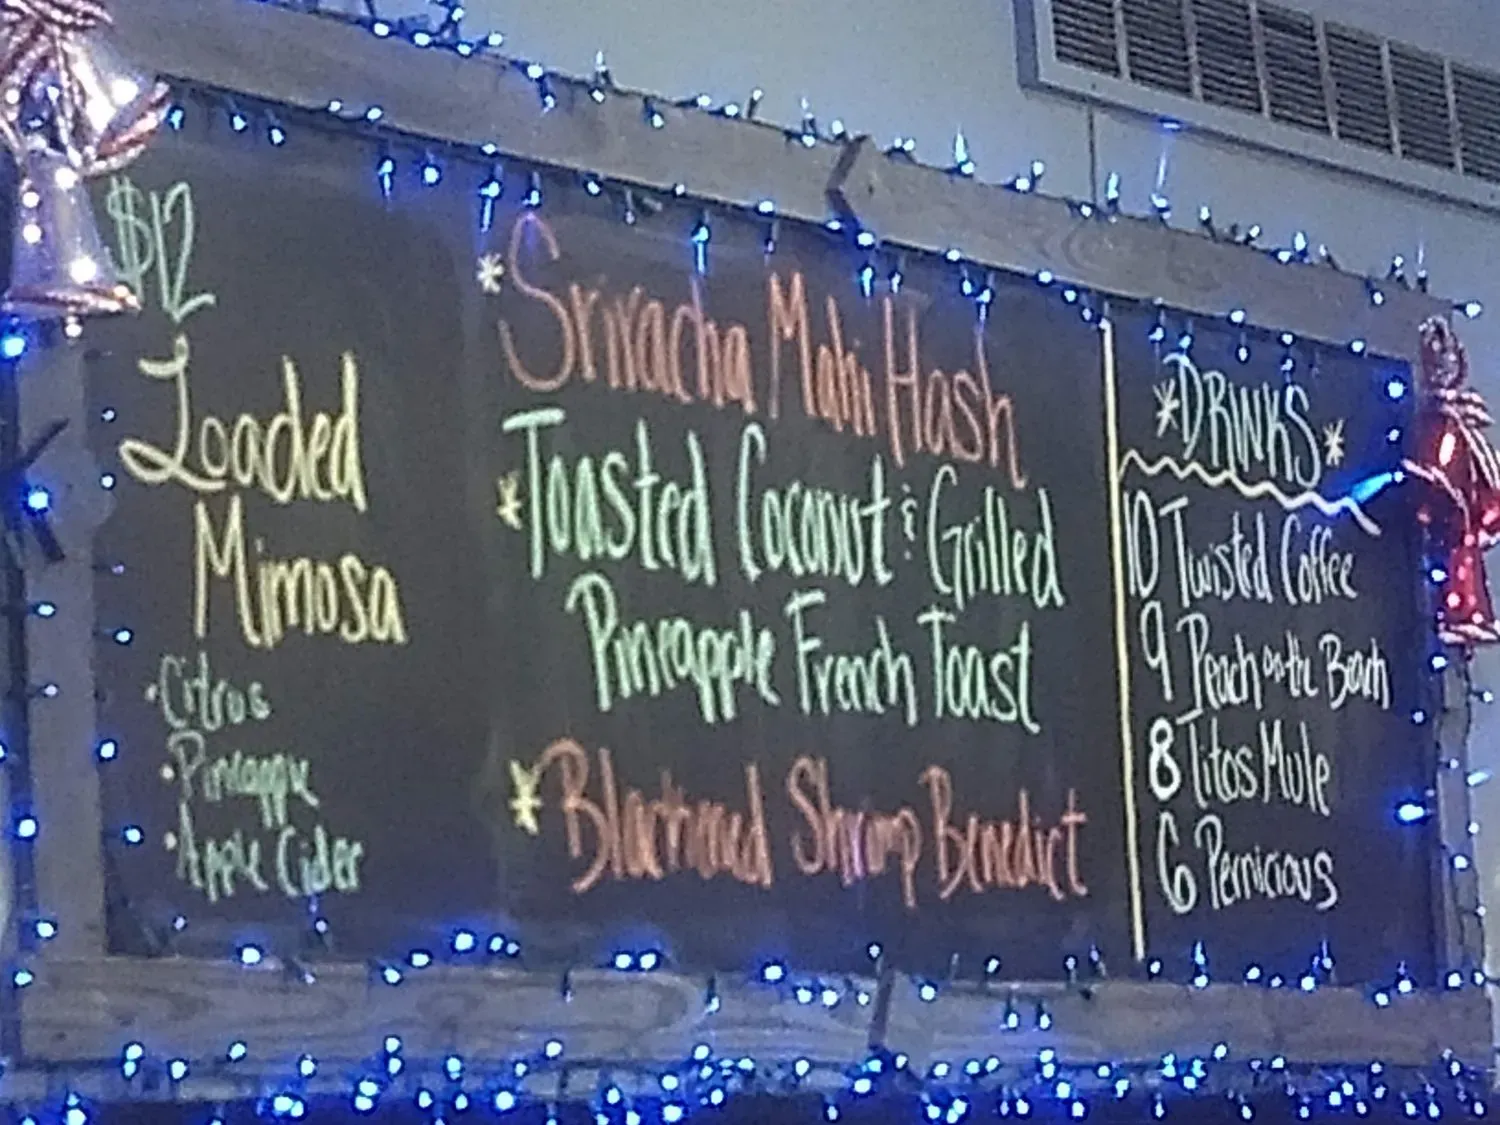 $12
Loaded
Mimosa
• Citrus
• Pineapple
• Apple Cider
* Sriracha Mahi Hash
* Toasted Coconut & Grilled
Pineapple French Toast
* Blackened Shrimp Benedict
* DRINKS *
10 Twisted Coffee
9 Peach on the Beach
8 Titos Mule
6 Pernicious